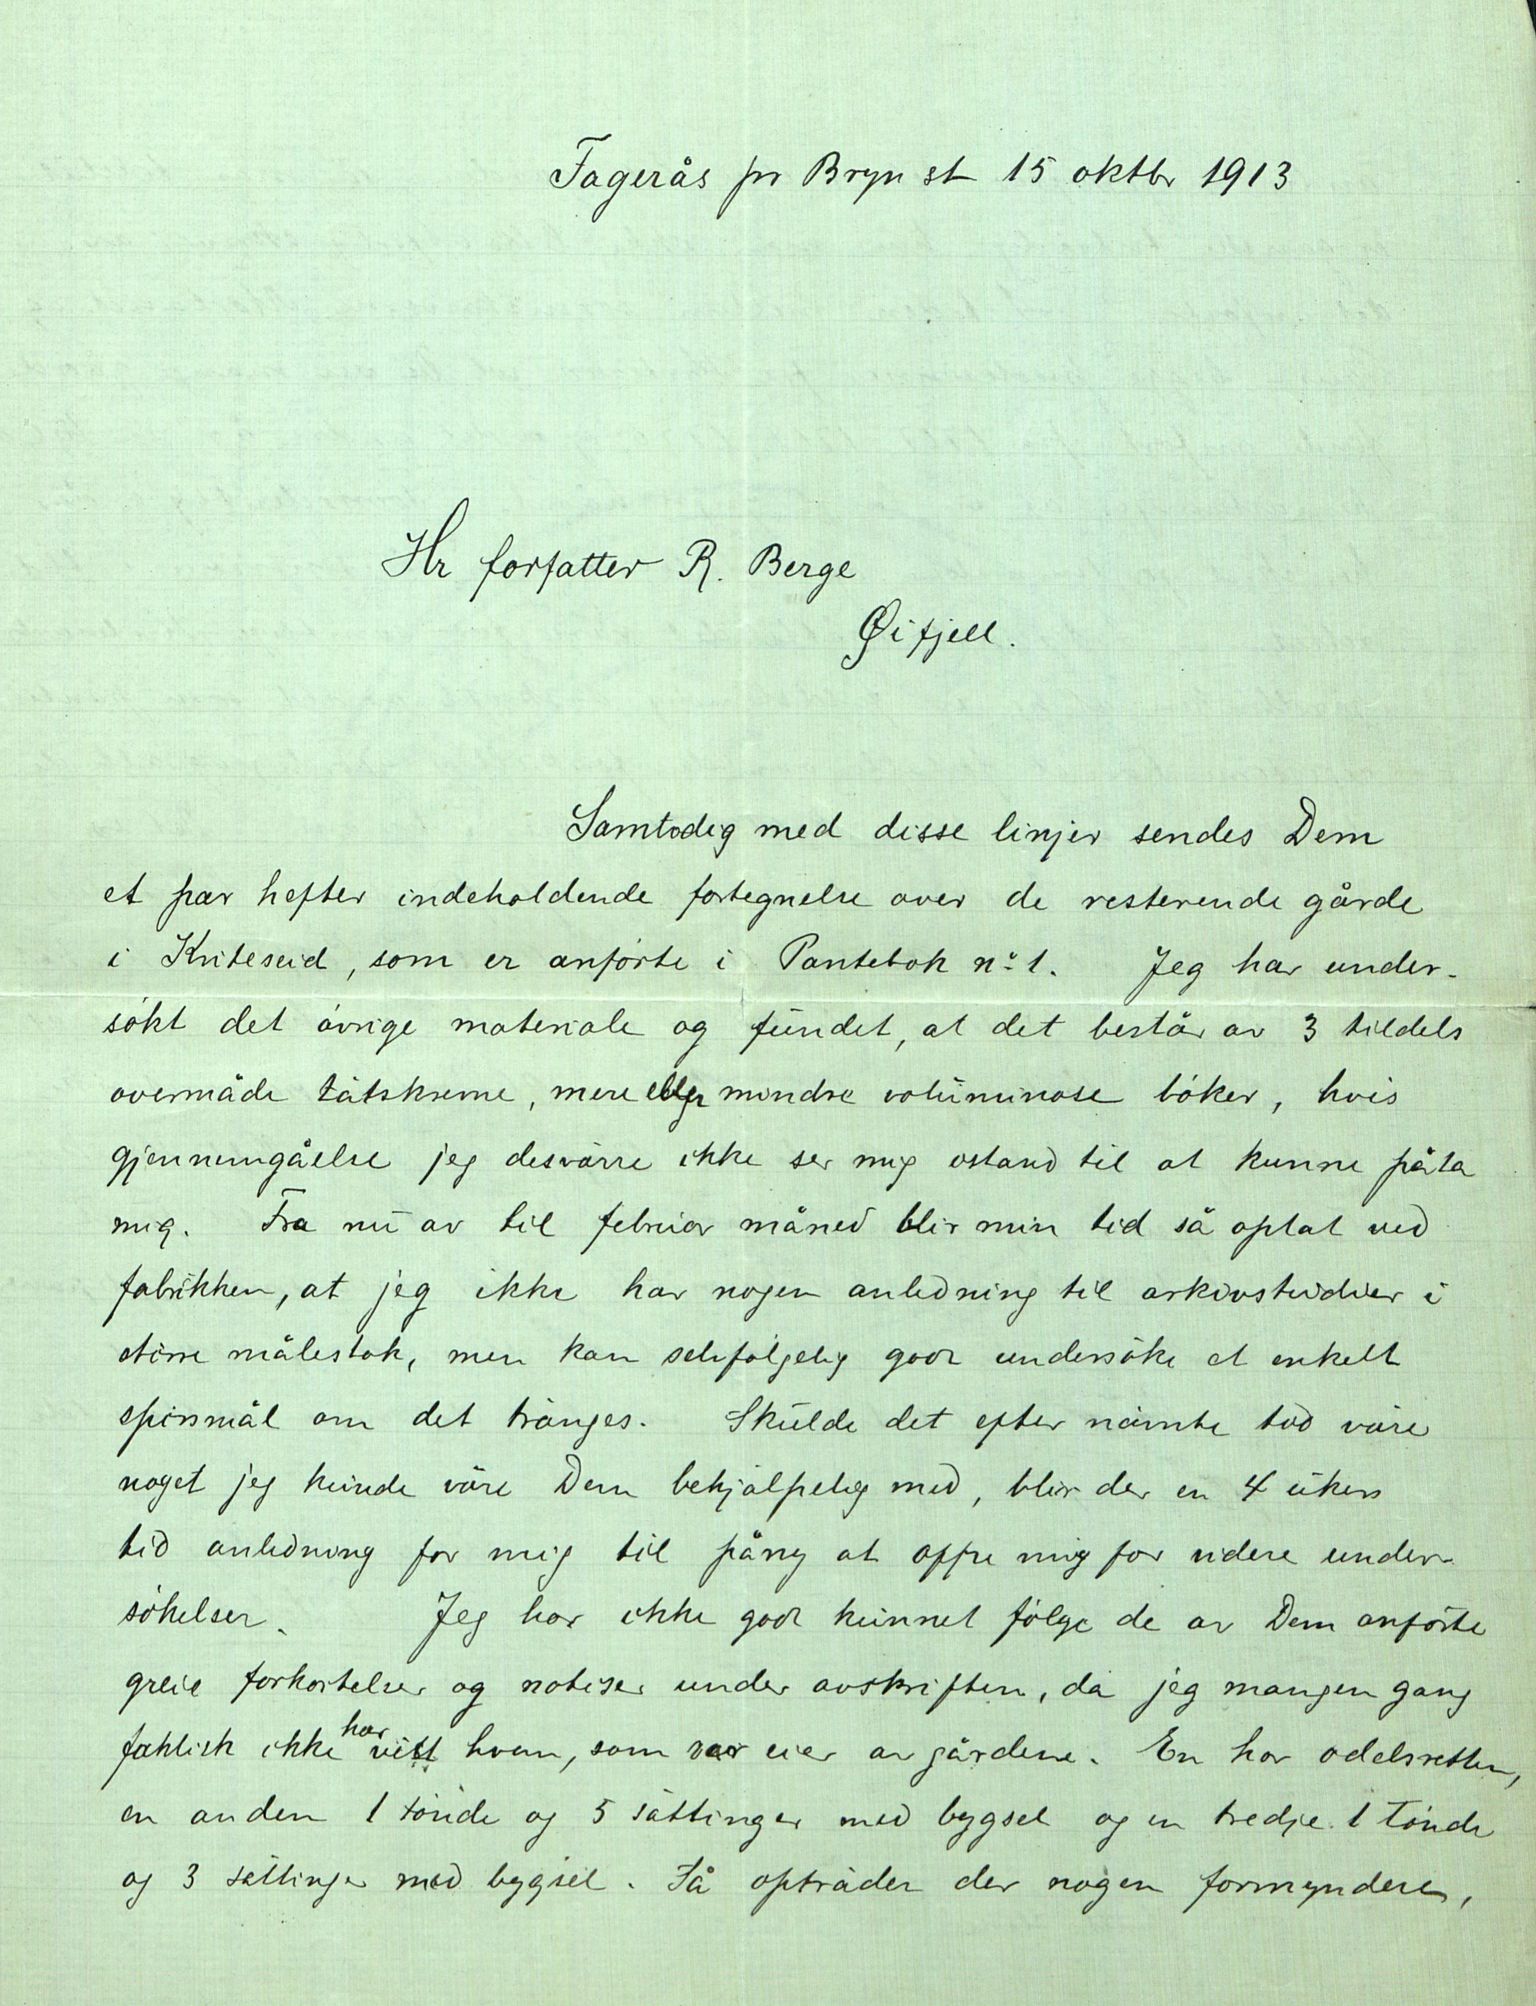 Fagerås pr Bryn st 15 oktbr 1913
Hr forfatter R. Berge
Øifjell.
Samtidig med disse linjer sendes Dem
et par hefter indeholdende fortegnelse over de resterende gårde
i Kviteseid, som er anførte i Pantebok nº 1. Jeg har under-
søkt det øvrige materiale og fundet, at det består av 3 tildels
overmåde tätskrevne, mere eller mindre voluminøse bøker, hvis
gjennemgåelse jeg desvärre ikke ser mig istand til at kunne påta
mig. Fra nu av til februar måned blir min tid så optat ved
fabrikken, at jeg ikke har nogen anledning til arkivstudier i
större målestok, men kan selvfølgelig godt undersøke et enkelt
spörsmål om det tränges. Skulde det efter nävnte tid väre
noget jeg kunde väre Dem behjälpelig med, blir der en 4 ukers
tid anledning for mig til påny at ofre mig for videre under-
søkelser. Jeg har ikke godt kunnet følge de av Dem anførte
greie forkortelser og notiser under avskriften, da jeg mangen gang
faktisk ikke har visst hvem, som var eier av gårdene. En har odelsretten,
en anden 1 tönde og 5 sättinger med bygsel og en tredje 1 tönde
og 3 sättinger med bygsel. Så opträder der nogen formyndere,